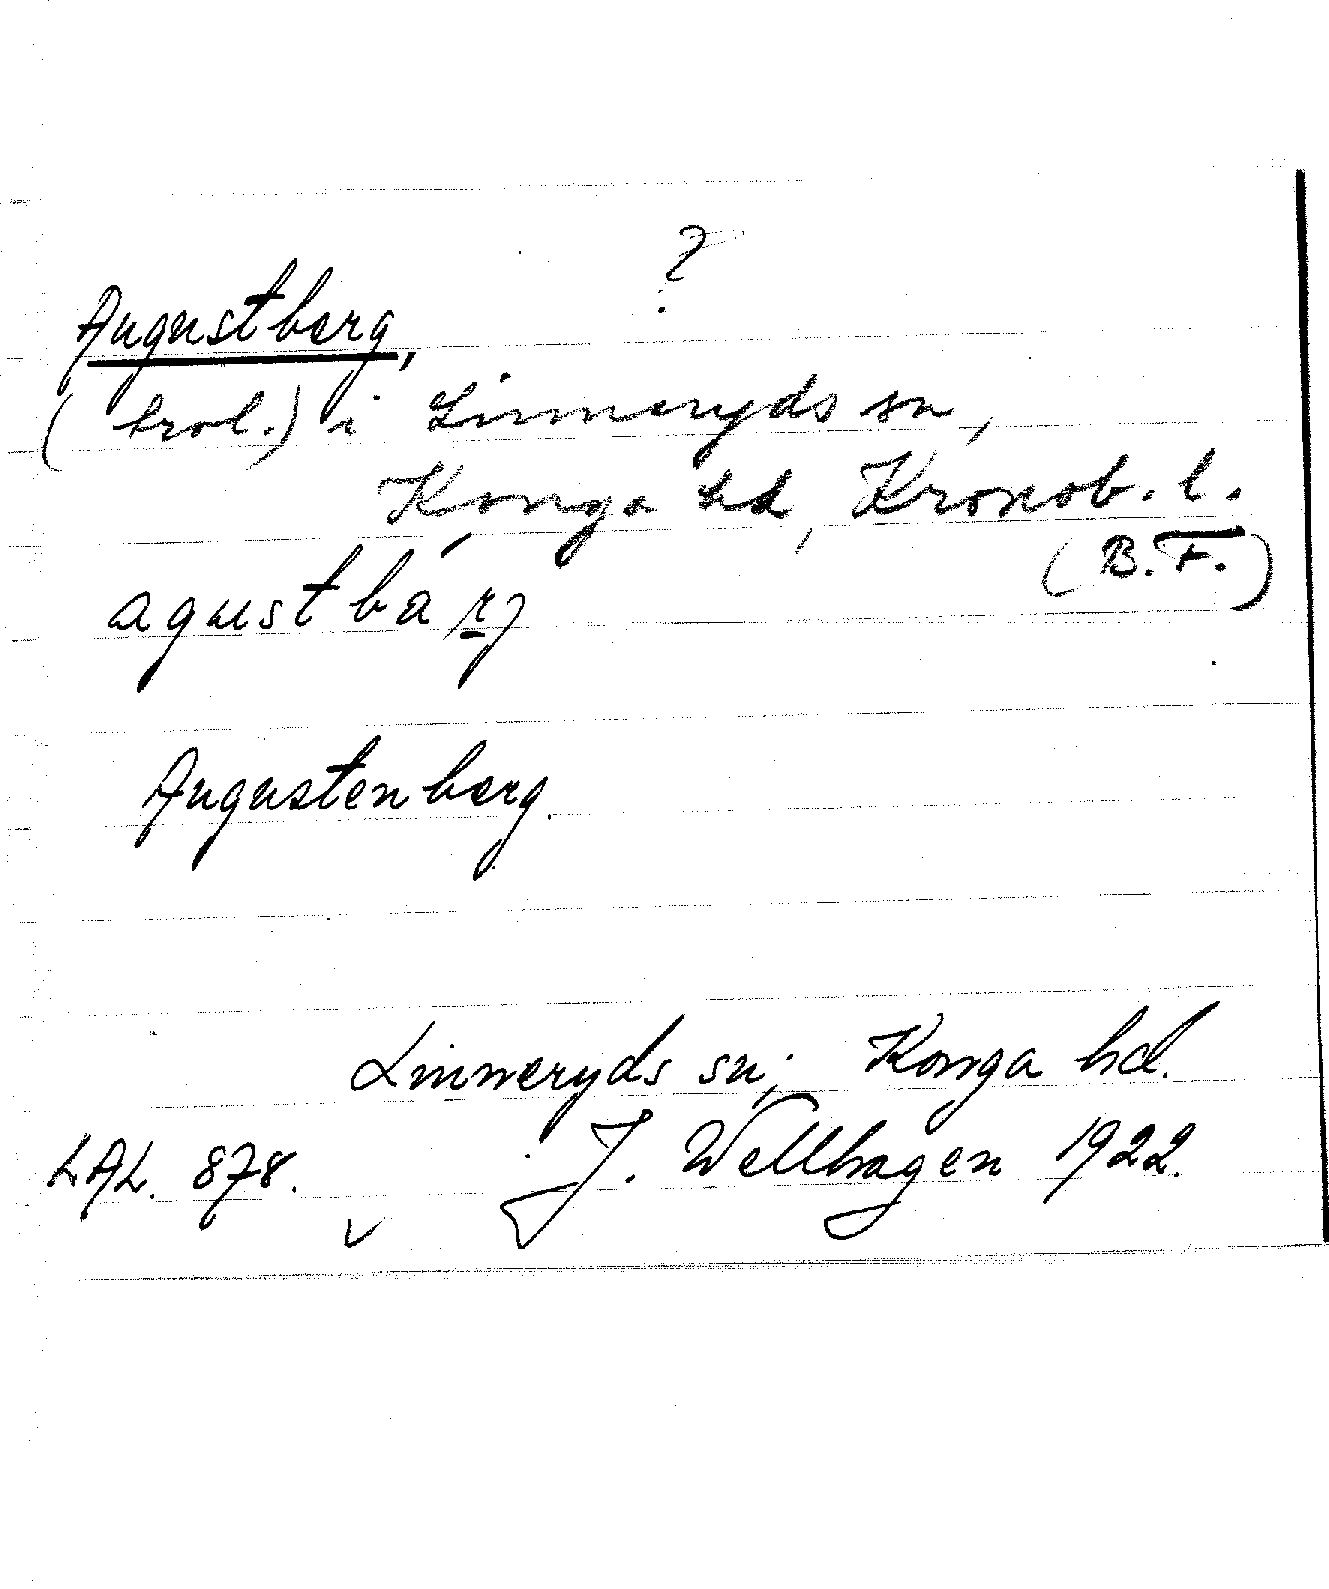 ?
Augustberg,
(trol.) i Linneryds sn,
Konga hd, Kronob. l.
(B.F.)
agustbárj
Augustenberg.
Linneryds sn; Konga hd.
LAL. 878. J. Wellhagen 1922.